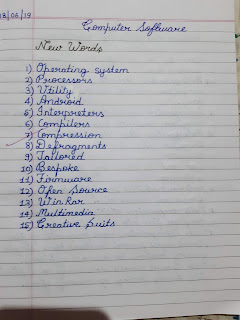 13/06/19
Computer Software
New Words
1) Operating System
2) Processors
3) Utility
4) Android
5) Interpreters
6) Compilers
7) Compression
8) Defragments
9) Tailored
10) Bespoke
11) Firmware
12) Open Source
13) Win Rar
14) Multimedia
15) Creative Suits